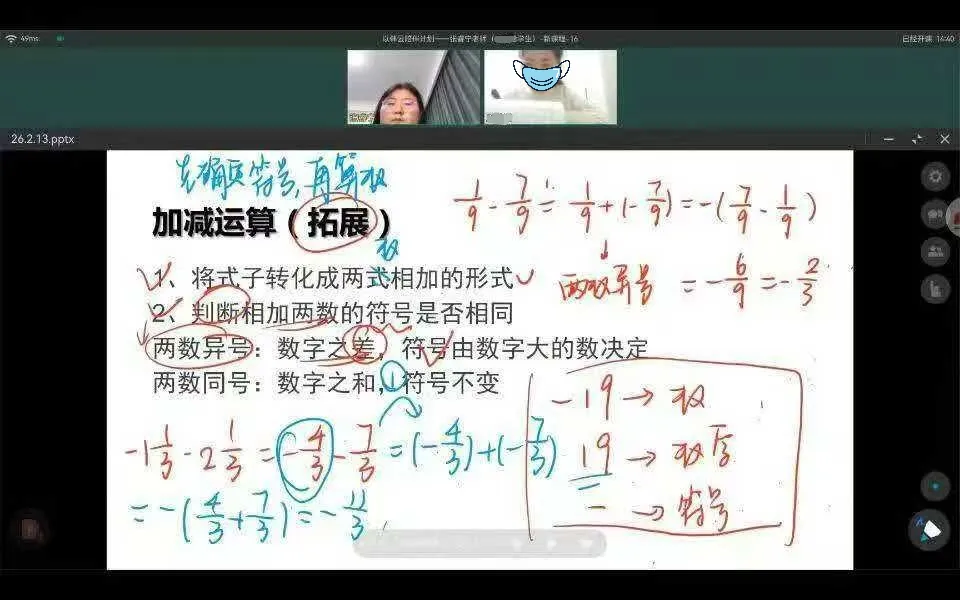 49ms
以伴云陪伴计划——张睿宁老师（ 学生）-新课程-16
已经开课 14:40
26.2.13.pptx
先确定符号,再算数
加减运算（拓展）
数
1、将式子转化成两式相加的形式
2、判断相加两数的符号是否相同
两数异号：数字之差，符号由数字大的数决定
两数同号：数字之和，符号不变
1/9 - 7/9 = 1/9 + (-7/9) = -(7/9 - 1/9)
两数异号 = -6/9 = -2/3
-1 1/3 - 2 1/3 = -4/3 - 7/3 = (-4/3) + (-7/3)
= -(4/3 + 7/3) = -11/3
-19 → 数
19 → 数字
- → 符号